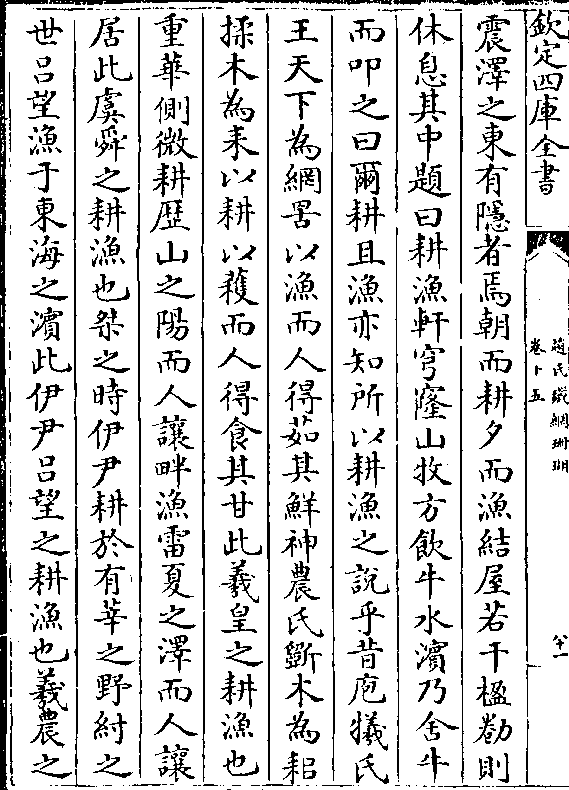 欽定四庫全書
趙氏鐵網珊瑚
卷十五
六十一
震澤之東有隱者焉朝而耕夕而漁結屋若干楹勸則
休息其中題曰耕漁軒穹窿山牧方飲牛水濱乃舍牛
而叩之曰爾耕且漁亦知所以耕漁之說乎昔庖犧氏
王天下為網罟以漁而人得茹其鮮神農氏斵木為耜
揉木為耒以耕以穫而人得食其甘此羲皇之耕漁也
重華側微耕歴山之陽而人讓畔漁雷夏之澤而人讓
居此虞舜之耕漁也桀之時伊尹耕於有莘之野紂之
世呂望漁于東海之濱此伊尹呂望之耕漁也羲農之